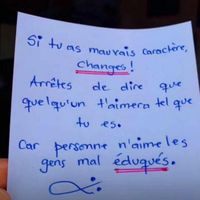 Si tu as mauvais caractère,
changes !
Arrêtes de dire que
quelqu'un t'aimera tel que
tu es.
Car personne n'aime les
gens mal éduqués.